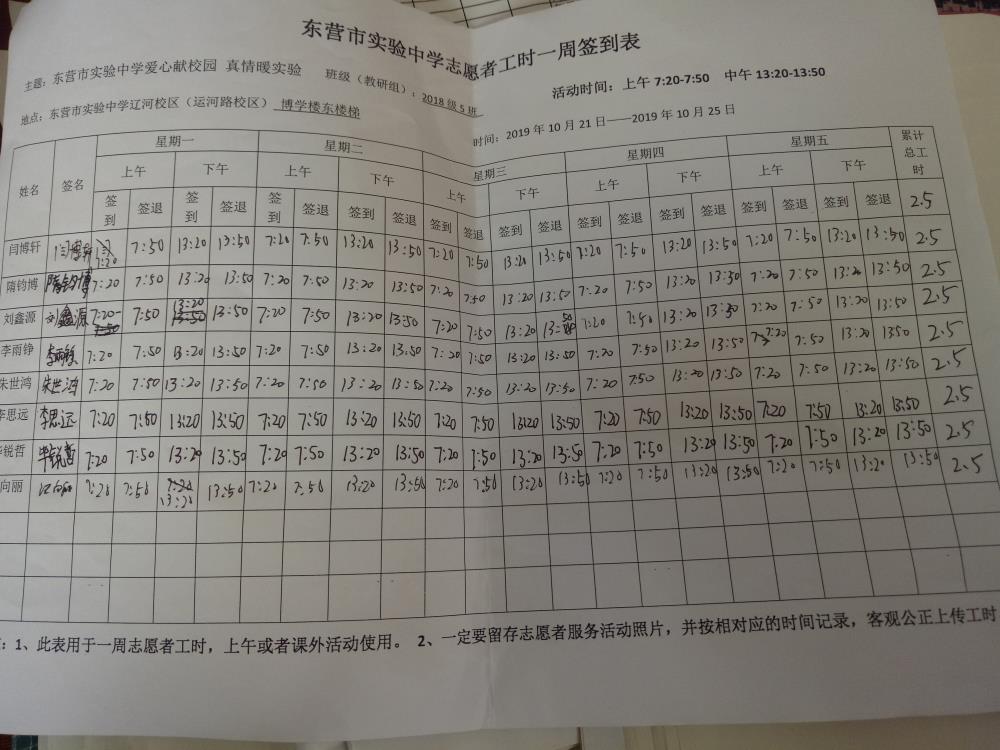 东营市实验中学志愿者工时一周签到表
主题：东营市实验中学爱心献校园 真情暖实验 班级（教研组）：2018级5班 活动时间：上午 7:20-7:50 中午 13:20-13:50
地点：东营市实验中学辽河校区（运河路校区） 博学楼东楼梯 时间：2019 年 10 月 21 日——2019 年 10 月 25 日
姓名 签名 星期一 星期二 星期三 星期四 星期五 累计总工时
上午 下午 上午 下午 上午 下午 上午 下午 上午 下午
签到 签退 签到 签退 签到 签退 签到 签退 签到 签退 签到 签退 签到 签退 签到 签退 签到 签退 签到 签退 2.5
闫博轩 闫博轩 7:20 7:50 13:20 13:50 7:20 7:50 13:20 13:50 7:20 7:50 13:20 13:50 7:20 7:50 13:20 13:50 7:20 7:50 13:20 13:50 2.5
隋钧博 隋钧博 7:20 7:50 13:20 13:50 7:20 7:50 13:20 13:50 7:20 7:50 13:20 13:50 7:20 7:50 13:20 13:50 7:20 7:50 13:20 13:50 2.5
刘鑫源 刘鑫源 7:20 7:50 13:20 13:50 7:20 7:50 13:20 13:50 7:20 7:50 13:20 13:50 7:20 7:50 13:20 13:50 7:20 7:50 13:20 13:50 2.5
李雨铮 李雨铮 7:20 7:50 13:20 13:50 7:20 7:50 13:20 13:50 7:20 7:50 13:20 13:50 7:20 7:50 13:20 13:50 7:20 7:50 13:20 1350 2.5
朱世鸿 朱世鸿 7:20 7:50 13:20 13:50 7:20 7:50 13:20 13:50 7:20 7:50 13:20 13:50 7:20 7:50 13:20 13:50 7:20 7:50 13:20 13:50 2.5
李思远 李思远 7:20 7:50 13:20 13:50 7:20 7:50 13:20 13:50 7:20 7:50 13:20 13:50 7:20 7:50 13:20 13:50 7:20 7:50 13:20 13:50 2.5
锐哲 毕锐哲 7:20 7:50 13:20 13:50 7:20 7:50 13:20 13:50 7:20 7:50 13:20 13:50 7:20 7:50 13:20 13:50 7:20 7:50 13:20 13:50 2.5
向丽 7:20 7:50 13:20 13:50 7:20 7:50 13:20 13:50 7:20 7:50 13:20 13:50 7:20 7:50 13:20 13:50 7:20 7:50 13:20 13:50 2.5
：1、此表用于一周志愿者工时，上午或者课外活动使用。 2、一定要留存志愿者服务活动照片，并按相对应的时间记录，客观公正上传工时